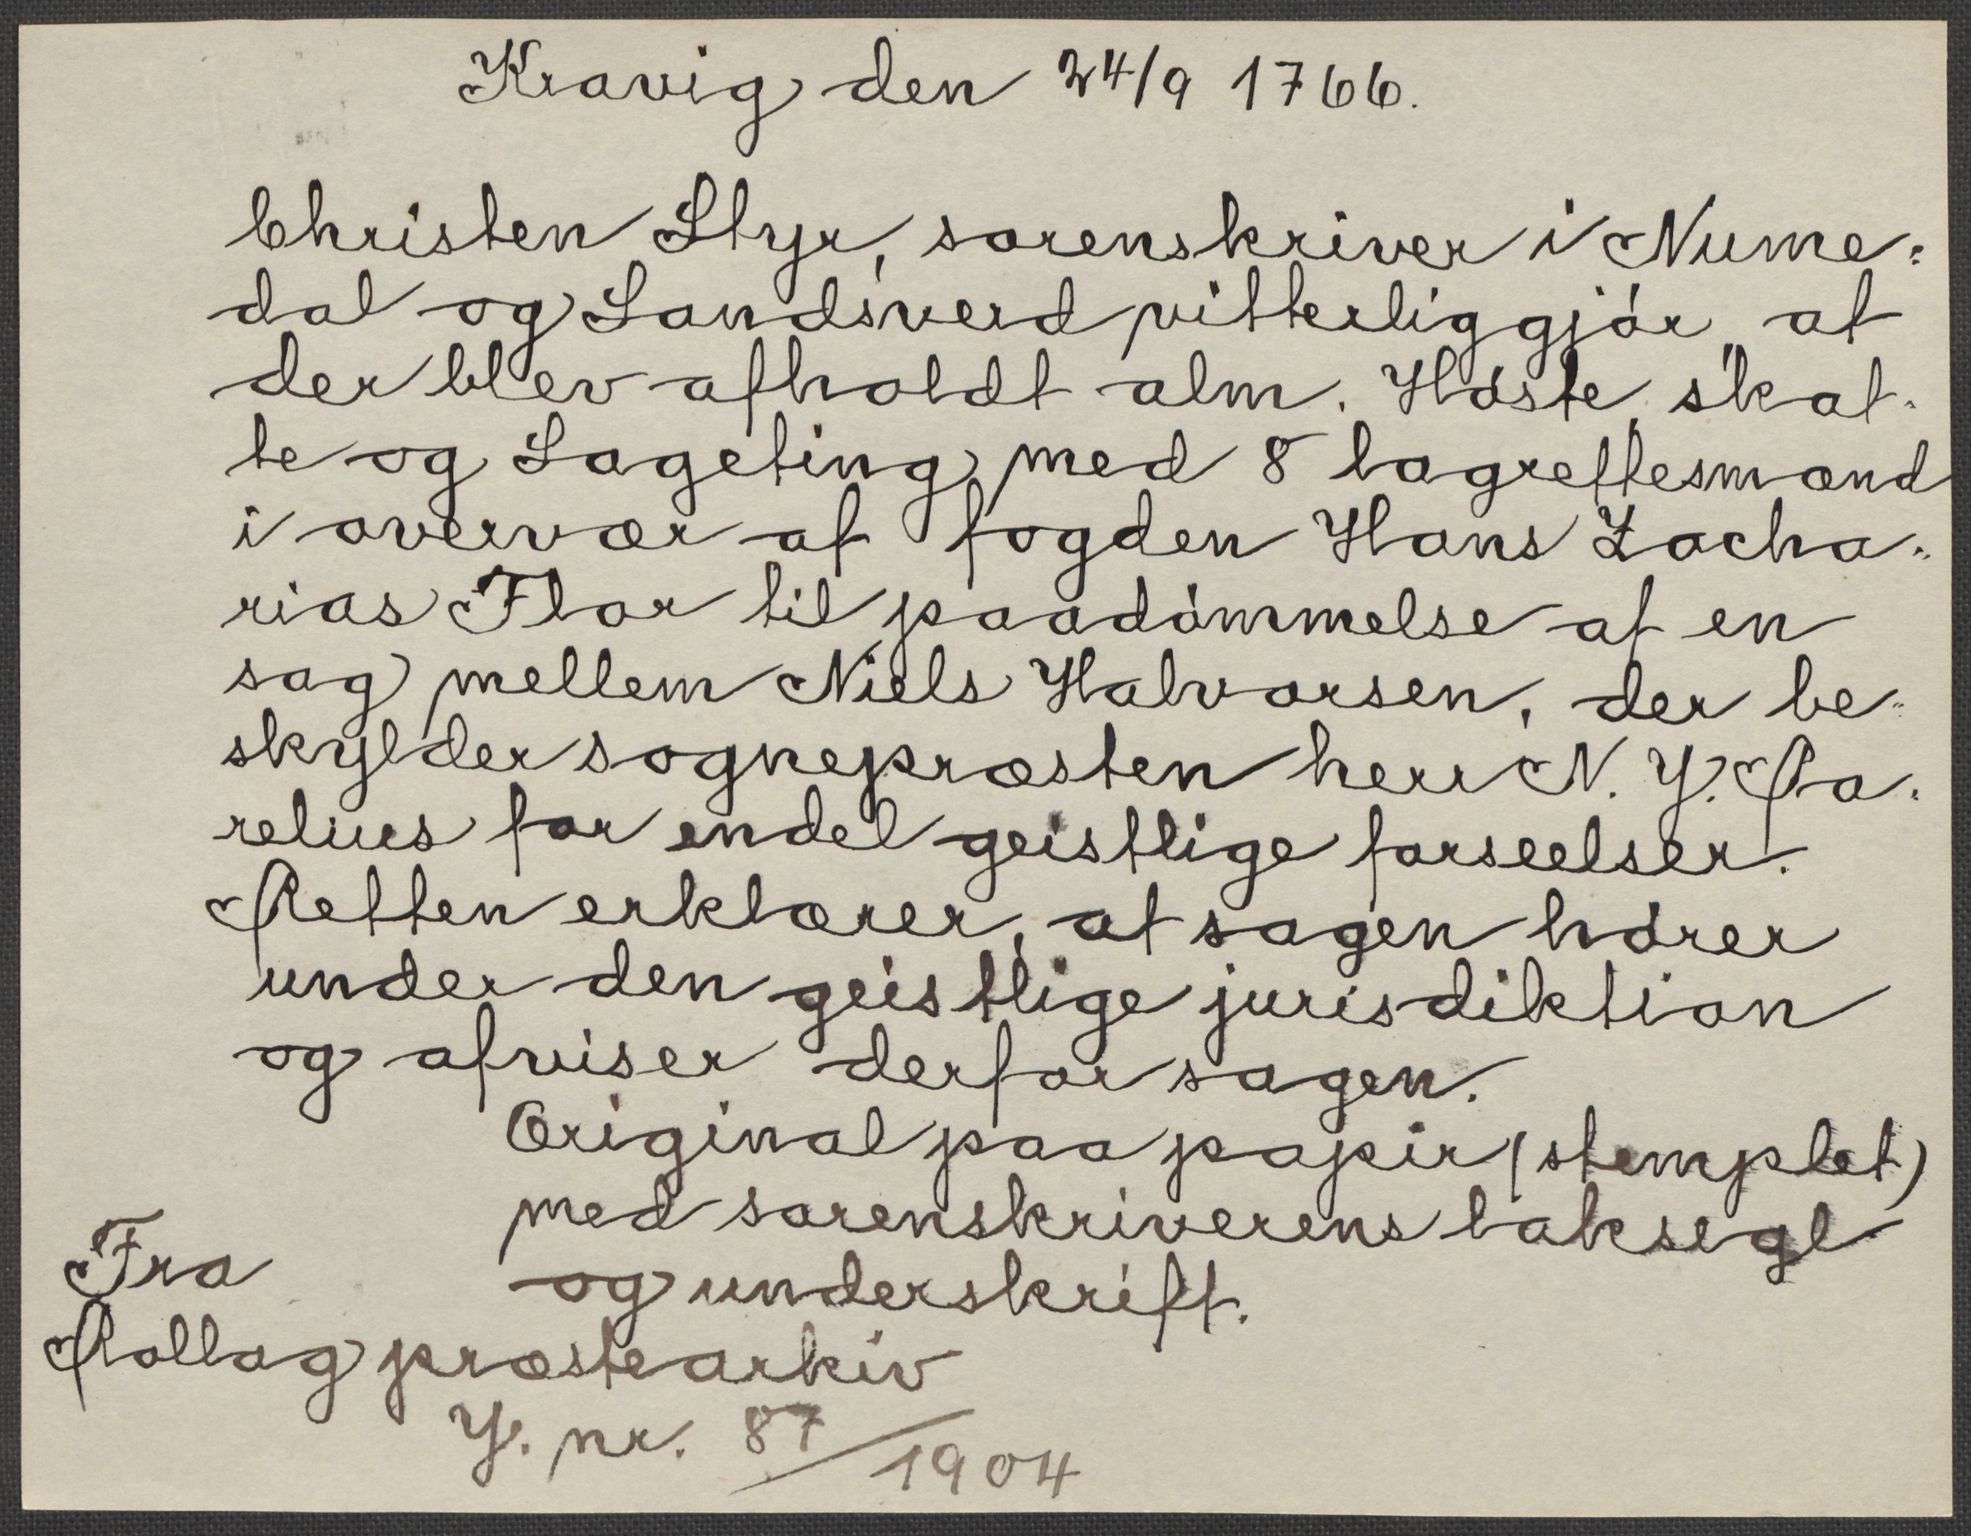 Kravig den 24/9 1766.
Christen Styr, sorenskriver i Nume-
dal og Sandsverd vitterliggjør, at
der blev afholdt alm. Høste, skat-
te og Sageting med 8 lagrettesmænd
i overvær af fogden Hans Zacha-
rias Flor til paadømmelse af en
sag mellem Niels Halvorsen, der be-
skylder sognepræsten herr N. J. Pa-
relius for endel geistlige forseelser.
Retten erklærer, at sagen hører
under den geistlige jurisdiktion
og afviser derfor sagen.
Original paa papir (stemplet)
med sorenskriverens laksegl
og underskrift.
Fra
Rollag præstearkiv
J. nr. 87/1904